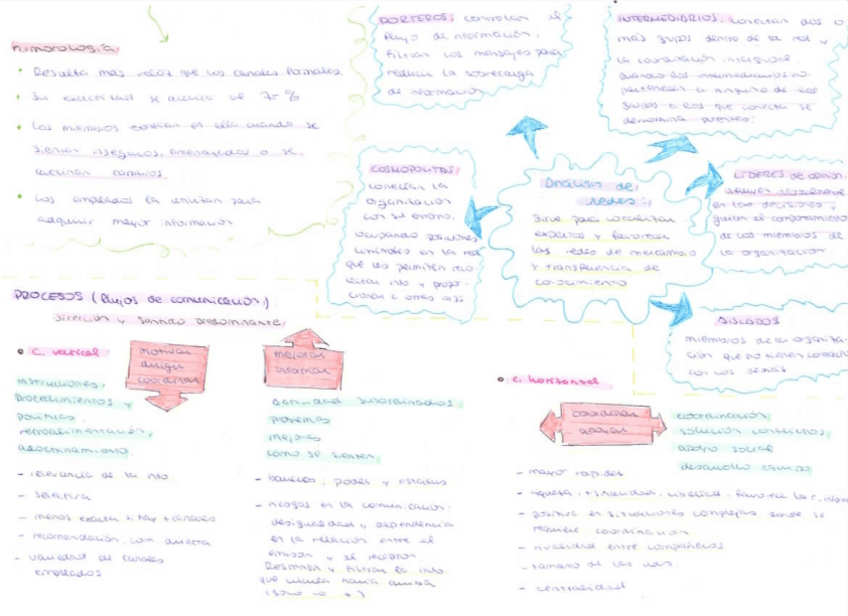 Rumorología
• Resulta más veloz que los canales formales.
• Su exactitud se acerca al 75%
• Los miembros confían en ella cuando se
sienten inseguros, amenazados o se
avecinan cambios.
• Los empleados la utilizan para
adquirir mayor información
PORTEROS: controlan el
flujo de información.
Filtran los mensajes para
reducir la sobrecarga
de información
INTERMEDIARIOS: conectan dos o
más grupos dentro de la red y
la coordinación
cuando los intermediarios no
pertenecen a ninguno de los
grupos a los que conecta se
denomina puentes.
COSMOPOLITAS:
conectan la
organización
con su entorno,
ocupando posiciones
limítrofes en la red
que les permiten
info y
a otros
Análisis de
redes:
Sirve para localizar
expertos y favorecer
las redes de
y transferencia de
conocimiento
LÍDERES de opinión:
en las decisiones y
guían el comportamiento
de los miembros de
la organización.
AISLADOS
miembros de la organiza-
ción que no tienen contacto
con los demás
PROCESOS (flujos de comunicación)
dirección y sentido predominante
• C. vertical
motivar
dirigir
coordinar
instrucciones,
procedimientos y
políticas,
retroalimentación,
adoctrinamiento
- relevancia de la info
- selectiva
- menos exacta si hay + canales
- recomendación: com directa
- variedad de canales
empleados
mejorar
informar
actividad subordinados,
problemas
mejoras
cómo se sienten
- barreras: poder y estatus
- riesgos en la comunicación:
desigualdad y dependencia
en la relación entre el
emisor y el receptor
Restringir y filtrar la info
que circula hacia arriba
(solo lo +)
• C. horizontal
coordinar
apoyar
coordinación,
solución conflictos,
apoyo social
desarrollo
- mayor rapidez
- positiva en situaciones complejas donde se
requiere coordinación
- rivalidad entre compañeros
- tamaño de las
- centralidad